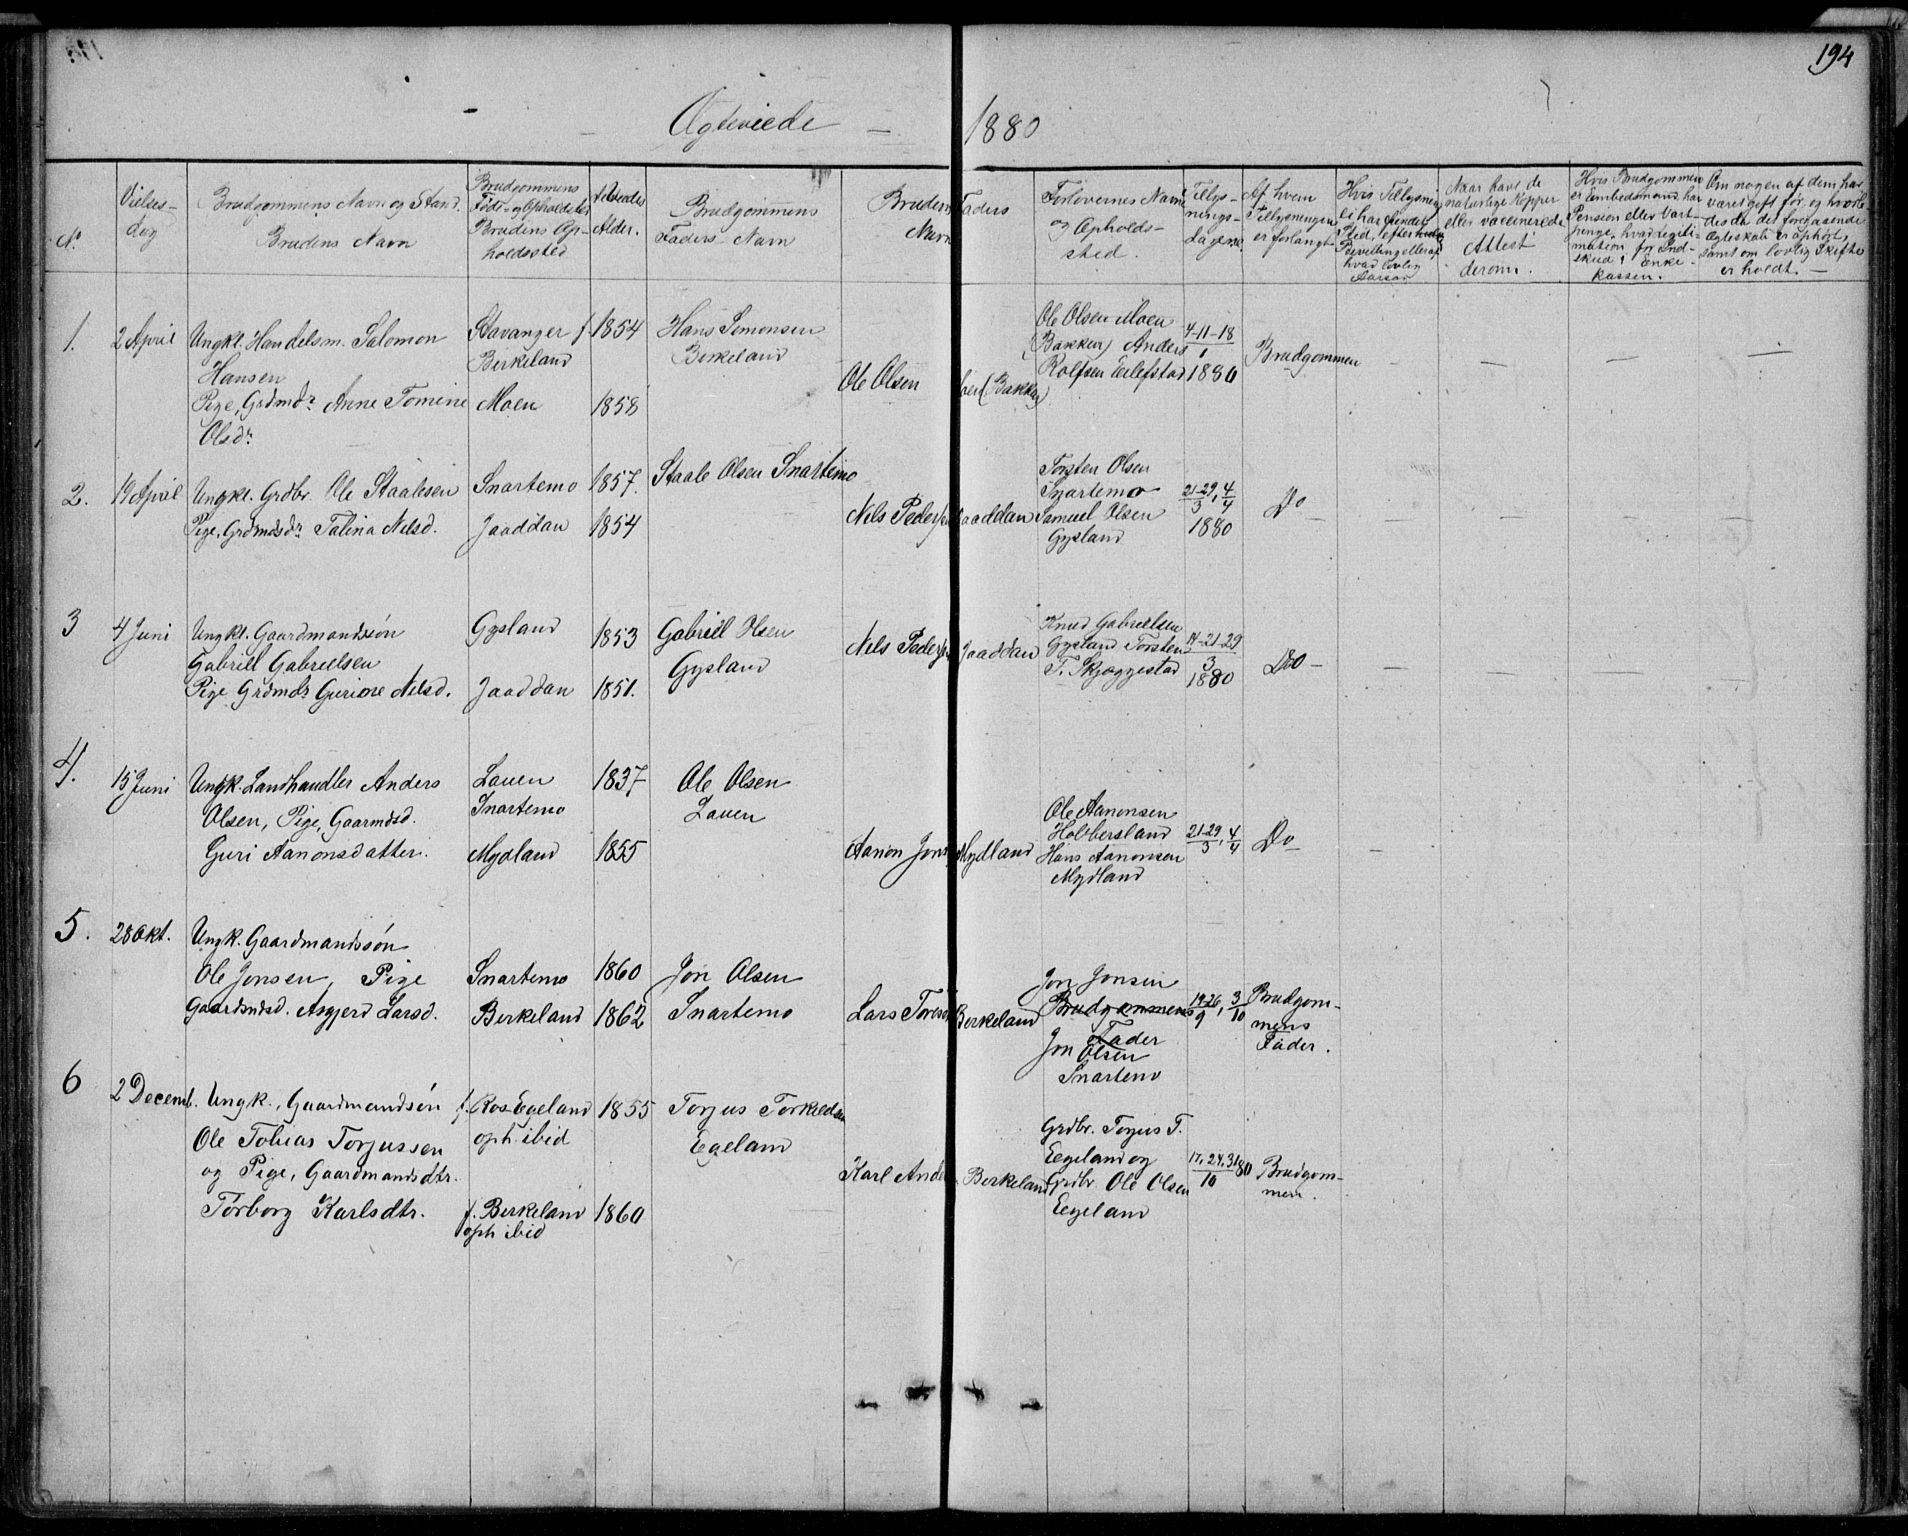 194
Ægteviede — 1880
№
Vielses-
dag
Brudgommens Navn og Stand.
Brudens Navn
Brudgommens
Føde- og Opholdsted
Brudens Op-
holdssted
Alder.
Brudgommens
Faders Navn
Brudens Faders
Navn
Forlovernes Navn
og Opholds-
sted.
Tillys-
nings-
Dagene
Af hvem
Tillysningen
er forlangt
Hvis Tillysning
ei har fundet
Sted, efter hvilken
Bevilling eller af
hvad lovlig
Aarsag
Naar havt de
naturlige Kopper
eller vaccinerede
Attest
derom.
Hvis Brudgommen
er Embedsmand har
Pension eller Vart-
penge, hvad legiti-
mation for Ind-
skud i Enke-
kassen.
Om nogen af dem har
været gift før, og hvorle-
des da det foregaaende
Ægteskab er ophørt,
samt om lovlig Skifte
er holdt. —
1. 2 April
Ungkl. Handelsm. Salomon
Hansen
Pige, Grdmdr. Anne Tomine
Olsdr.
Stavanger f.
Berkeland
Moen
1854
1858
Hans Simonsen
Berkeland
Ole Olsen Moen (Bakken)
Ole Olsen Moen
(Bakken) Anders
Rolfsen Eilefstad
4-11-18
1
1880
Brudgommen
2. 19 April
Ungkl. Grdbr. Ole Staalesen
Pige, Grdmdsdr. Talina Nelsd.
Snartemo
Jaaddan
1857.
1854
Staale Olsen Snartemo
Nils Pedersen Jaaddan
Torsten Olsen
Snartemo
Samuel Olsen
Gysland
21-29, 4
3 4
1880
Do
3 4 Juni
Ungkl. Gaardmandssøn
Gabriel Gabrielsen
Pige Grdmdr Gurine Nelsd.
Gysland
Jaaddan
1853
1851.
Gabriel Olsen
Gysland
Nils Pedersen Jaaddan
Knud Gabrielsen
Gysland Torsten
T. Skjæggestad
14-21-29
3
1880
Do —
4. 15 Juni
Ungk. Landhandler Anders
Olsen, Pige, Gaarmdsd.
Guri Aanonsdatter.
Lauen
Snartemo
Mydland
1837
1855
Ole Olsen
Lauen
Aanon Jons Mydland
Ole Aanonsen
Holbersland
Hans Aanonsen
Mydland
21-29, 4
3 4
Do
5. 28 Okt.
Ungk. Gaardmandssøn
Ole Jonsen, Pige
Gaardmdsd. Asgjerd Larsd.
Snartemo
Berkeland
1860
1862
Jon Olsen
Snartemo
Lars Tores Berkeland
Jon Jonsen
Brudgommens
Fader
Jon Olsen
Snartemo
19-26, 3
9 10
Brudgom-
mens
Fader.
6 2 Decemb.
Ungk., Gaardmandsøn
Ole Tobias Torjussen
og Pige, Gaardmandsdtr.
Torborg Karlsdtr.
f. Ros-Egeland
oph. ibid
f. Berkeland
oph ibid
1855
1860
Torjus Torkeldsen
Egeland
Karl Ande Berkeland
Grdbr. Torjus T.
Eegeland og
Grdbr Ole Olsen
Eegeland
17, 24, 31 80
10
Brudgom-
men.